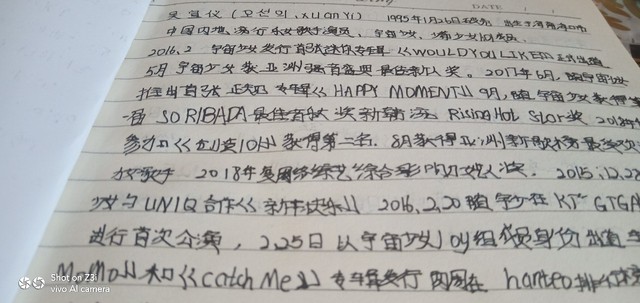 DATE
吴宣仪（오선의，XUAN YI） 1995年1月26日 出生于海南海口市
中国内地流行乐女歌手、演员，宇宙少女、火箭少女101成员。
2016.2 宇宙少女发行首张迷你专辑《WOULD YOU LIKE》正式出道
5月宇宙少女获亚洲 最佳新人奖。2017年6月，随宇宙少女
推出首张正规专辑《HAPPY MOMENT》 9月，随宇宙少女获得
届 SORIBADA最佳音乐奖新韩流 Rising Hot Star奖 2018年
参加《创造101》获得第二名. 8月获得亚洲新歌榜 最受欢
歌手 2018年度 综艺 奖. 2015.12.28
少女与UNIQ合作《新年快乐》 2016.2.20 随宇少在KT GTGA
进行首次公演，2.25日以宇宙少女Joy组成员身份出道
MoMoMo》和《Catch Me》专辑发行 在hanteo排行榜
Shot on Z3i
vivo AI camera